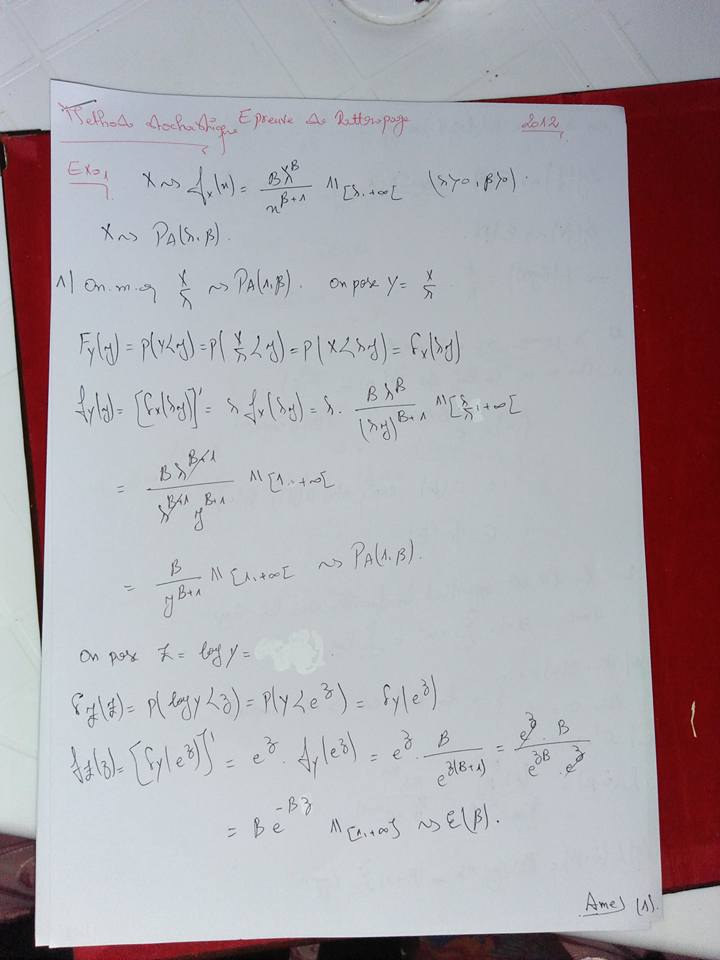 Methode stochastique Epreuve de Rattrapage 2012
Exo1 X ~> f_x(x) = Bλ^B / x^{B+1} 1_{[λ, +∞[} (λ>0, β>0).
X ~> P_A(λ, β).
1) On m. q X/λ ~> P_A(1, β). On pose Y = X/λ
F_Y(y) = P(Y<y) = P(X/λ < y) = P(X<λy) = F_x(λy)
f_Y(y) = [F_x(λy)]' = λ f_x(λy) = λ. Bλ^B / (λy)^{B+1} 1_{[λ/λ, +∞[}
= Bλ^{B+1} / λ^{B+1} y^{B+1} 1_{[1, +∞[}
= B / y^{B+1} 1_{[1, +∞[} ~> P_A(1, β).
On pose Z = log Y =
F_Z(z) = P(log Y < z) = P(Y < e^z) = F_Y(e^z)
f_Z(z) = [F_Y(e^z)]' = e^z . f_Y(e^z) = e^z . B / e^{z(B+1)} = e^z . B / e^{zB} . e^z
= B e^{-Bz} 1_{[1, +∞[} ~> ε(β).
(1).